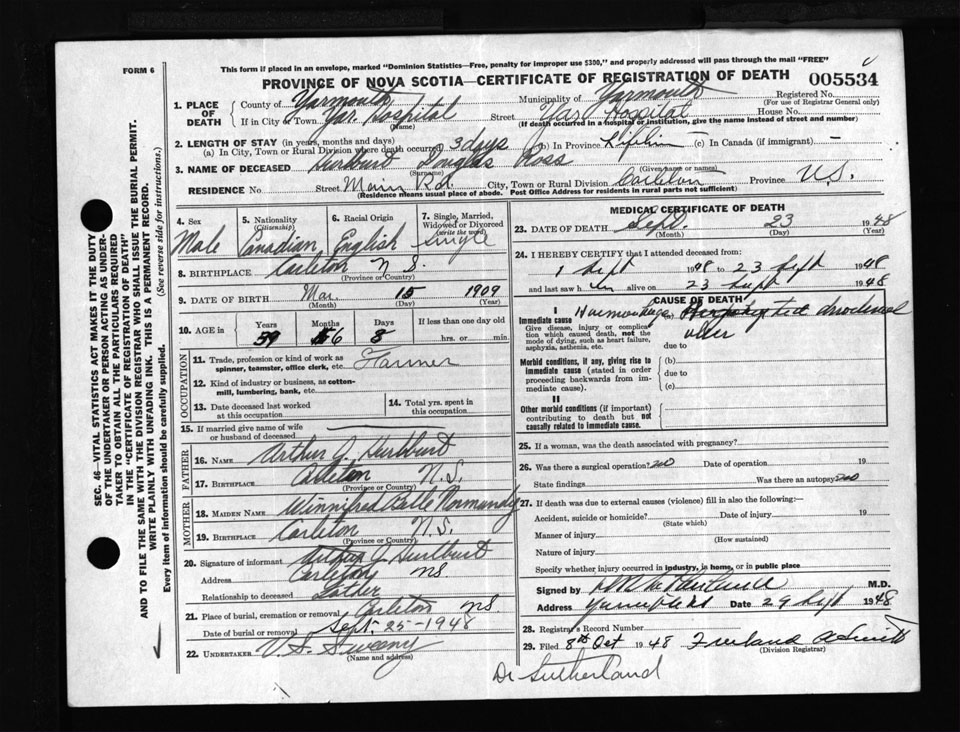 FORM 6
This form if placed in an envelope, marked "Dominion Statistics—Free, penalty for improper use $300," and properly addressed will pass through the mail "FREE"
PROVINCE OF NOVA SCOTIA—CERTIFICATE OF REGISTRATION OF DEATH 005534
1. PLACE OF DEATH
County of Yarmouth Municipality of Yarmouth Registered No.
(For use of Registrar General only)
If in City or Town Yar. Hospital Street Yar. Hospital House No.
(Name) (If death occurred in a hospital or institution, give the name instead of street and number)
2. LENGTH OF STAY (in years, months and days)
(a) In City, Town or Rural Division where death occurred 3 days (b) In Province Lifetime (c) In Canada (if immigrant)
3. NAME OF DECEASED Hurlburt Douglas Ross
(Surname) (Given name or names)
RESIDENCE No. Street Main Rd. City, Town or Rural Division Carleton Province N.S.
(Residence means usual place of abode. Post Office Address for residents in rural parts not sufficient)
4. Sex
Male
5. Nationality
(Citizenship)
Canadian
6. Racial Origin
English
7. Single, Married, Widowed or Divorced
(write the word)
Single
8. BIRTHPLACE Carleton N.S.
(Province or Country)
9. DATE OF BIRTH Mar. 15 1909
(Month) (Day) (Year)
10. AGE in Years Months Days If less than one day old
39 6 8 hrs. or min.
OCCUPATION
11. Trade, profession or kind of work as spinner, teamster, office clerk, etc. Farmer
12. Kind of industry or business, as cotton-mill, lumbering, bank, etc.
13. Date deceased last worked at this occupation
14. Total yrs. spent in this occupation
15. If married give name of wife or husband of deceased
FATHER
16. NAME Arthur J. Hurlburt
17. BIRTHPLACE Carleton N.S.
(Province or Country)
MOTHER
18. MAIDEN NAME Winnifred Belle Normandy
19. BIRTHPLACE Carleton N.S.
(Province or Country)
20. Signature of informant Arthur J. Hurlburt
Address Carleton NS
Relationship to deceased Father
21. Place of burial, cremation or removal Carleton NS
Date of burial or removal Sept. 25-1948
22. UNDERTAKER V.S. Sweeny
(Name and address)
MEDICAL CERTIFICATE OF DEATH
23. DATE OF DEATH Sept. 23 1948
(Month) (Day) (Year)
24. I HEREBY CERTIFY that I attended deceased from:
1 Sept 1948 to 23 Sept 1948
and last saw him alive on 23 Sept 1948
CAUSE OF DEATH
I
Immediate cause
Give disease, injury or complication which caused death, not the mode of dying, such as heart failure, asphyxia, asthenia, etc.
(a) Haemorrhage duodenal
ulcer
due to
Morbid conditions, if any, giving rise to immediate cause (stated in order proceeding backwards from immediate cause).
(b)
due to
(c)
II
Other morbid conditions (if important) contributing to death but not causally related to immediate cause.
25. If a woman, was the death associated with pregnancy?
26. Was there a surgical operation? no Date of operation 19
State findings Was there an autopsy? no
27. If death was due to external causes (violence) fill in also the following:—
Accident, suicide or homicide? Date of injury 19
(State which)
Manner of injury
(How sustained)
Nature of injury
Specify whether injury occurred in industry, in home, or in public place
Signed by M.D.
Address Date 29 Sept 1948
28. Registrar's Record Number
29. Filed 8th Oct 1948 Freeland
(Division Registrar)
Dr Sutherland
SEC. 46—VITAL STATISTICS ACT MAKES IT THE DUTY
OF THE UNDERTAKER OR PERSON ACTING AS UNDER-
TAKER TO OBTAIN ALL THE PARTICULARS REQUIRED
IN THE "CERTIFICATE OF REGISTRATION OF DEATH"
AND TO FILE THE SAME WITH THE DIVISION REGISTRAR WHO SHALL ISSUE THE BURIAL PERMIT.
WRITE PLAINLY WITH UNFADING INK. THIS IS A PERMANENT RECORD.
Every item of information should be carefully supplied. (See reverse side for instructions.)